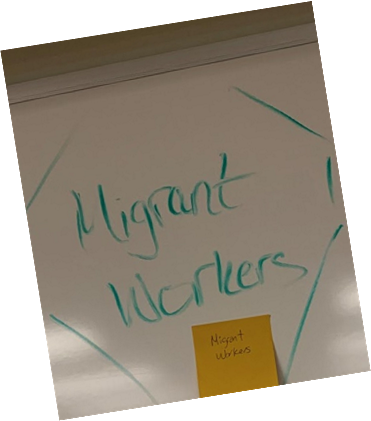 Migrant
Workers
Migrant
Workers